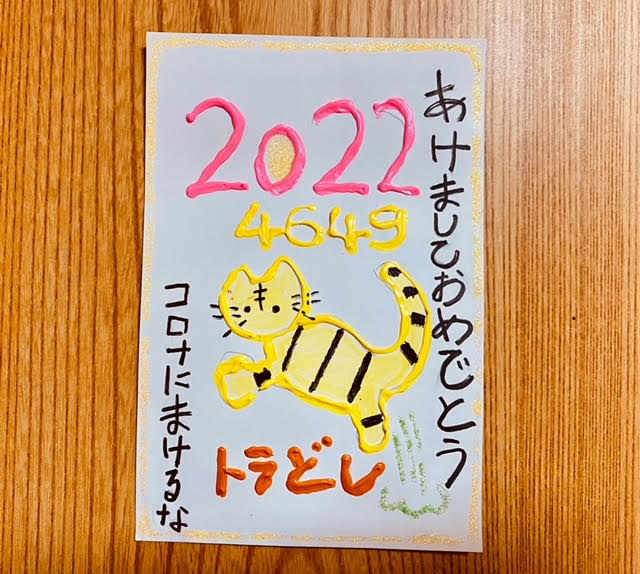 あけましておめでとう
2022
4649
トラどし
コロナにまけるな